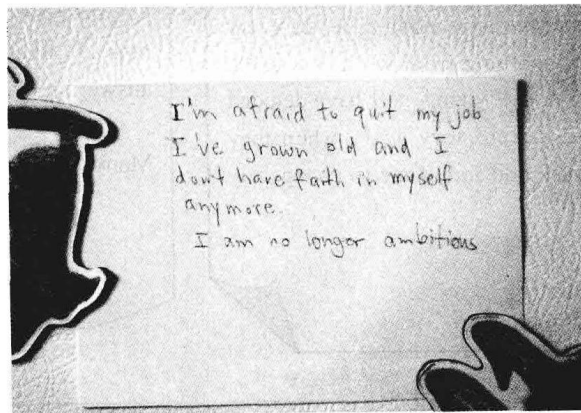 I'm afraid to quit my job
I've grown old and I
don't have faith in myself
anymore.
I am no longer ambitious